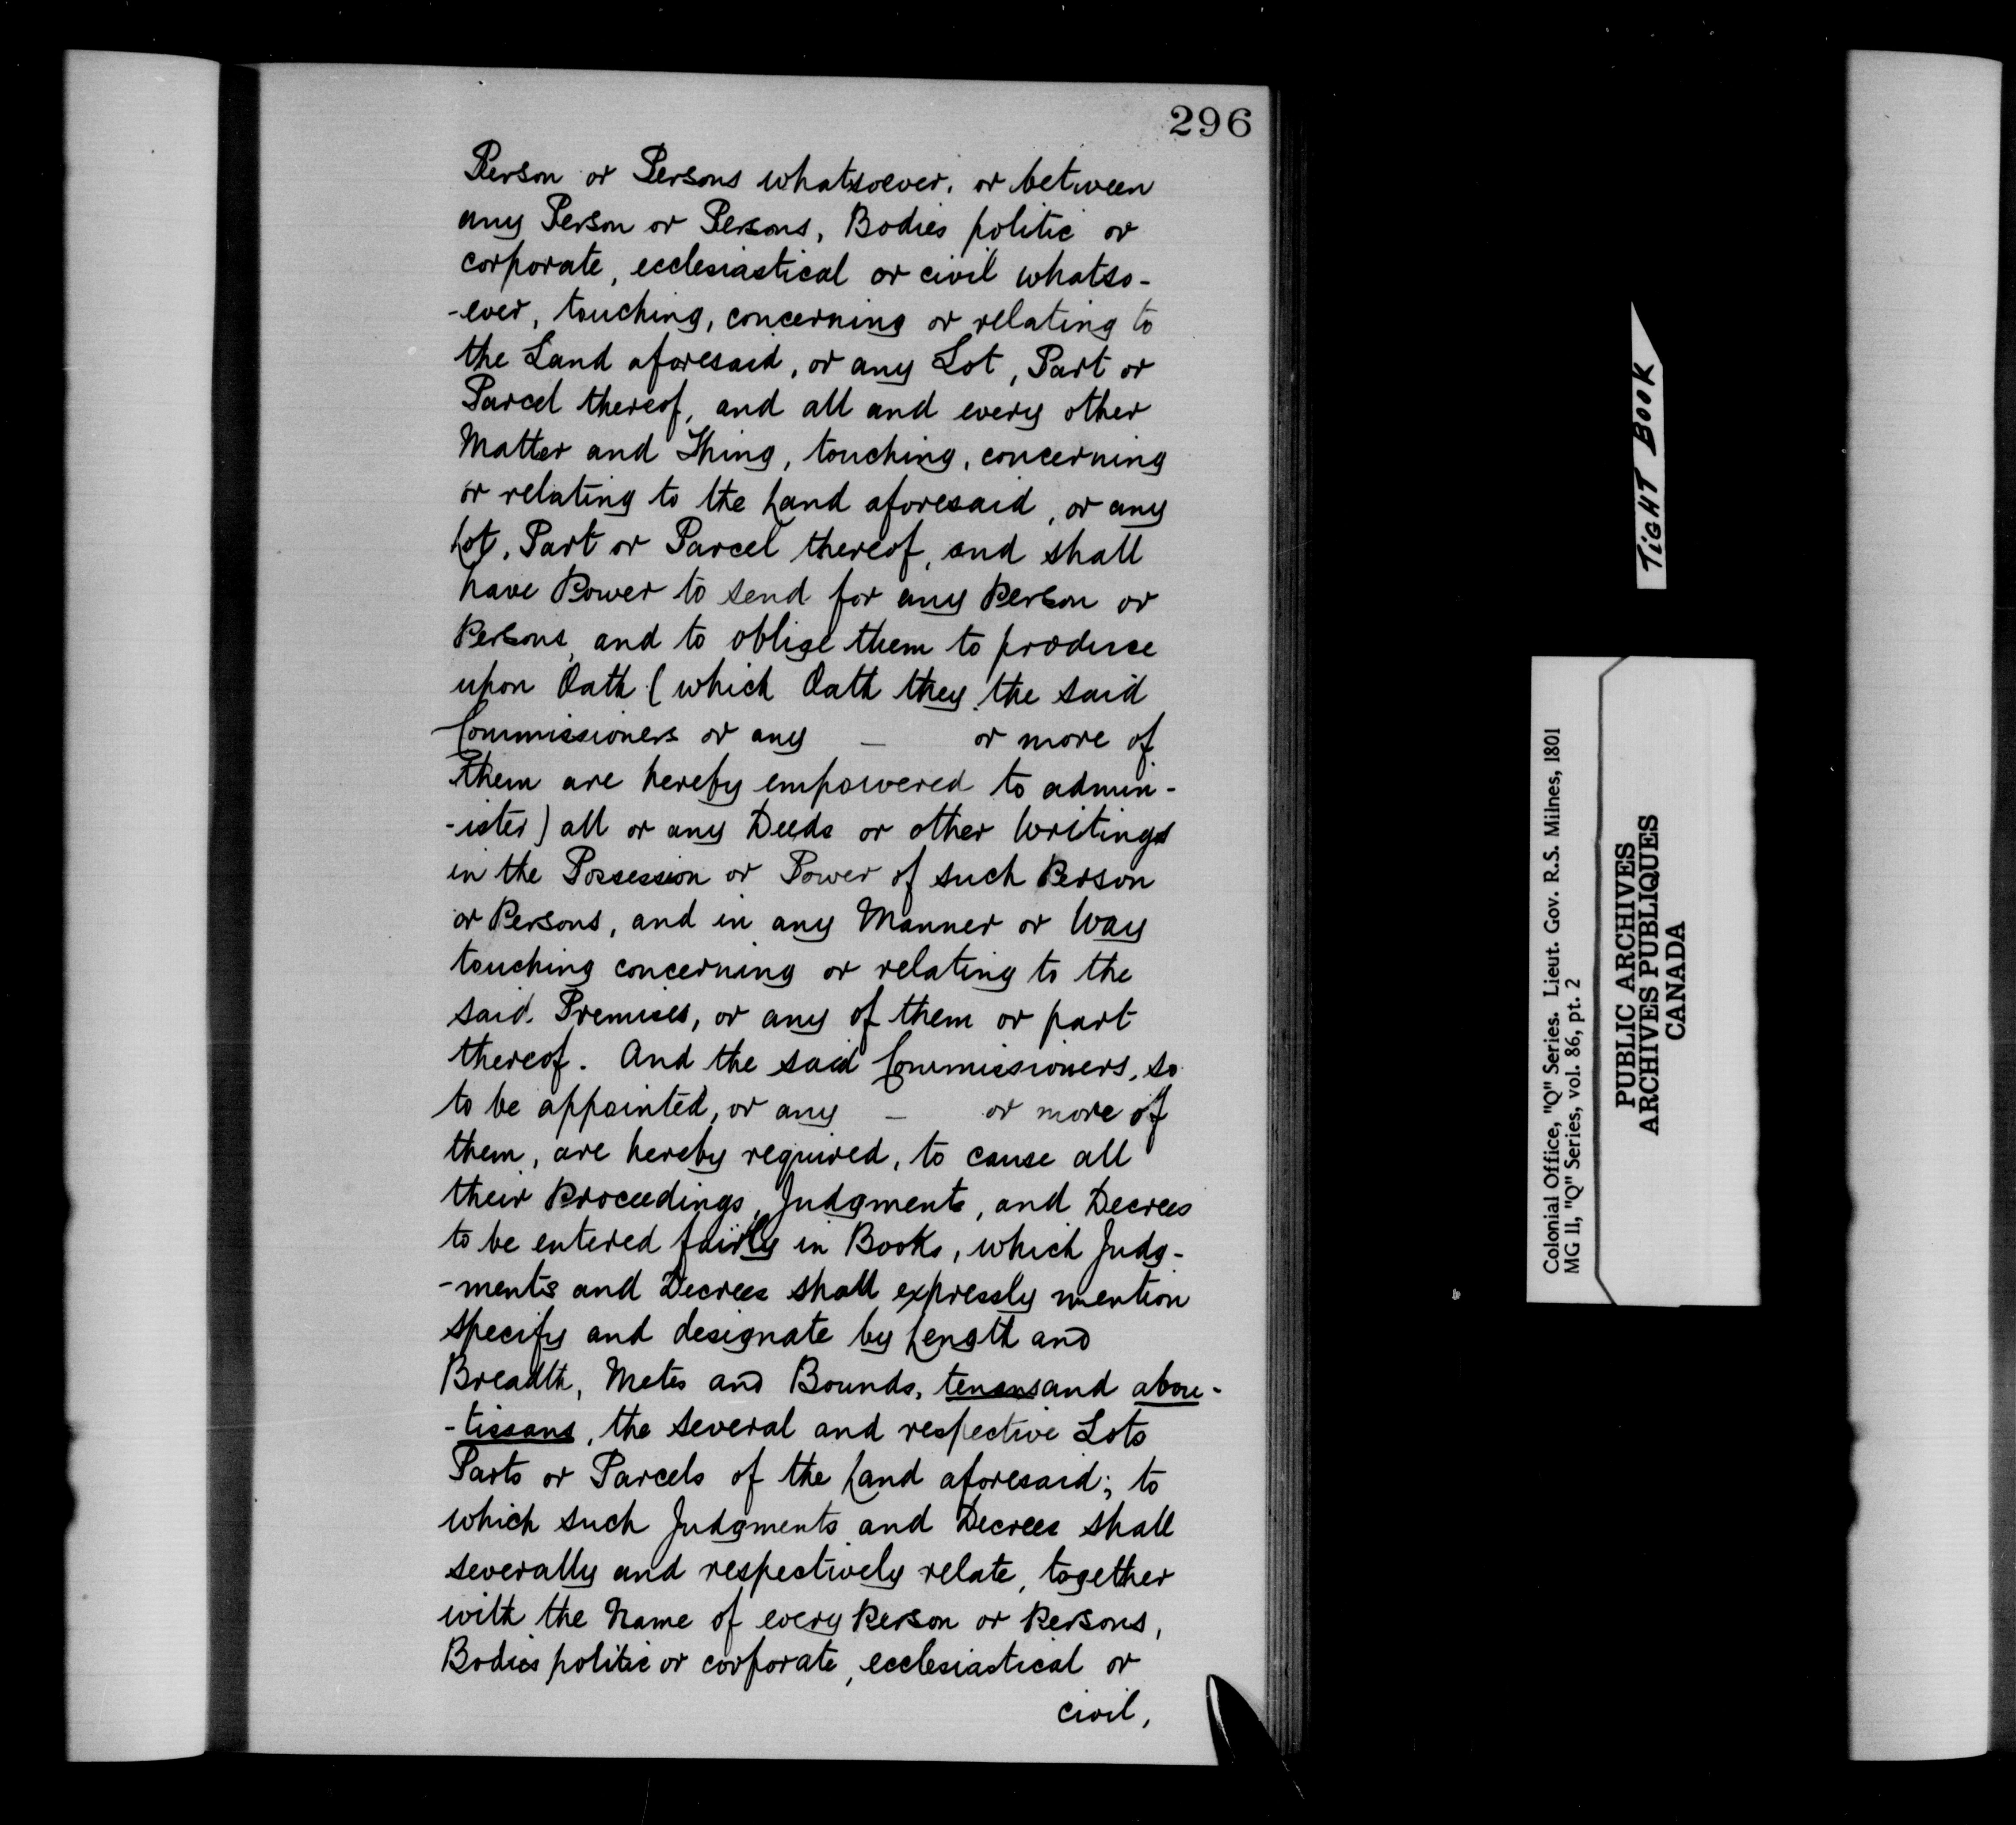 296
Person or Persons whatsoever, or between
any Person or Persons, Bodies politic or
corporate, ecclesiastical or civil whatso-
-ever, touching, concerning or relating to
the Land aforesaid, or any Lot, Part or
Parcel thereof, and all and every other
Matter and Thing, touching, concerning
or relating to the Land aforesaid, or any
Lot, Part or Parcel thereof, and shall
have Power to send for any Person or
Persons, and to oblige them to produce
upon Oath (which Oath they the said
Commissioners or any — or more of
them are hereby empowered to admin-
-ister) all or any Deeds or other Writings
in the Possession or Power of such Person
or Persons, and in any Manner or Way
touching concerning or relating to the
said Premises, or any of them or part
thereof. And the said Commissioners, so
to be appointed, or any — or more of
them, are hereby required, to cause all
their Proceedings, Judgments, and Decrees
to be entered fairly in Books, which Judg-
-ments and Decrees shall expressly mention
specify and designate by Length and
Breadth, Metes and Bounds, tenans and abou-
-tissans, the several and respective Lots
Parts or Parcels of the Land aforesaid; to
which such Judgments and Decrees shall
severally and respectively relate, together
with the Name of every Person or Persons,
Bodies politic or corporate, ecclesiastical or
civil,
TIGHT BOOK
Colonial Office, "Q" Series. Lieut. Gov. R.S. Milnes, 1801
MG 11, "Q" Series, vol. 86, pt. 2
PUBLIC ARCHIVES
ARCHIVES PUBLIQUES
CANADA